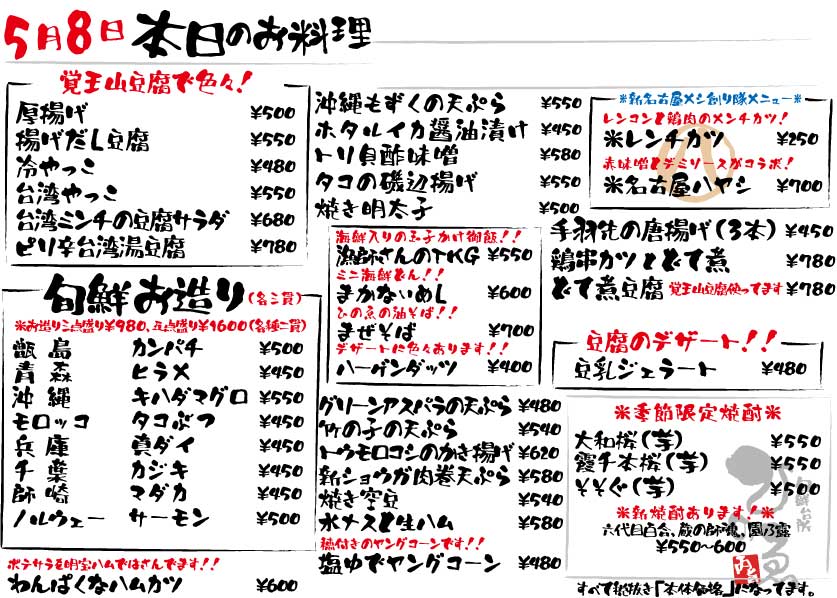 5月8日 本日のお料理
覚王山豆腐で色々!
厚揚げ ¥500
揚げだし豆腐 ¥550
冷やっこ ¥480
台湾やっこ ¥550
台湾ミンチの豆腐サラダ ¥680
ピリ辛台湾湯豆腐 ¥780
旬鮮お造り(各三貫)
※お造り三点盛り¥980、五点盛り¥1600(各種二貫)
甑島 カンパチ ¥500
青森 ヒラメ ¥450
沖縄 キハダマグロ ¥550
モロッコ タコぶつ ¥450
兵庫 真ダイ ¥450
千葉 カジキ ¥450
師崎 マダカ ¥450
ノルウェー サーモン ¥500
ポテサラを明宝ハムではさんでます!!
わんぱくなハムカツ ¥600
沖縄もずくの天ぷら ¥550
ホタルイカ醤油漬け ¥450
トリ貝酢味噌 ¥580
タコの磯辺揚げ ¥550
焼き明太子 ¥500
海鮮入りの玉子かけ御飯!!
漁師さんのTKG ¥550
ミニ海鮮どん!!
まかないめし ¥600
ひの魚の油そば!!
まぜそば ¥700
デザートに色々あります!!
ハーゲンダッツ ¥400
グリーンアスパラの天ぷら ¥480
竹の子の天ぷら ¥540
トウモロコシのかき揚げ ¥620
新ショウガ肉巻天ぷら ¥580
焼き空豆 ¥540
水ナスと生ハム ¥580
穂付きのヤングコーンです!!
塩ゆでヤングコーン ¥480
※新名古屋メシ創り隊メニュー※
レンコンと鶏肉のメンチカツ!
※レンチカツ ¥250
赤味噌とデミソースがコラボ!
※名古屋ハヤシ ¥700
手羽先の唐揚げ(3本) ¥450
鶏串カツとどて煮 ¥780
どて煮豆腐 覚王山豆腐使ってます ¥780
豆腐のデザート!!
豆乳ジェラート ¥480
※季節限定焼酎※
大和桜(芋) ¥550
霞千本桜(芋) ¥550
そそぐ(芋) ¥500
※新焼酎あります!※
六代目百合、蔵の師魂、園乃露
¥550~600
旬鮮台所
すべて税抜き「本体価格」になってます。